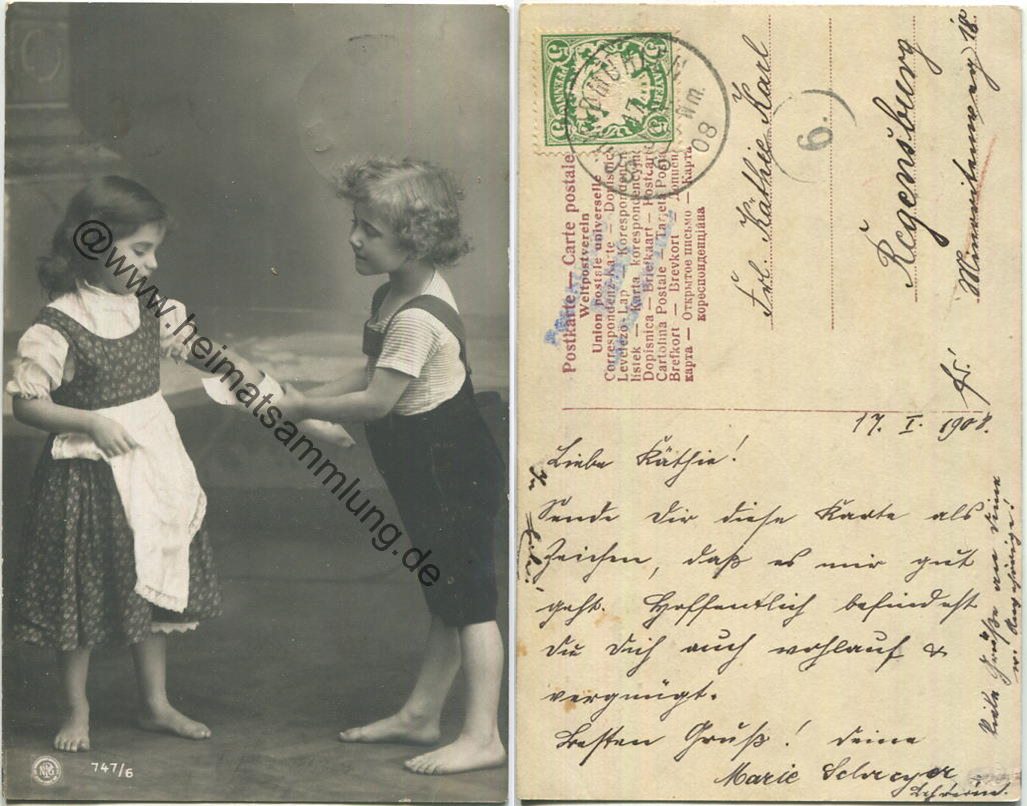 @www.heimatsammlung.de
NPG
747/6
5
5
PFENNIG
BAYERN
MÜNCHEN
17.
Nm.
08
6.
Postkarte — Carte postale
Weltpostverein
Union postale universelle
Correspondenz-Karte — Dopisnice
Levelező-Lap — Korespondenční
lístek — Karta korespondencyjna
Dopisnica — Briefkaart — Postcard
Cartolina Postale — Tarjeta Postal
Brefkort — Brevkort — Дописна
карта — Открытое письмо — Карта
кореспонденцiйна
Frl. Käthie Karl
Regensburg
Minoritenweg 18.
17. I. 1908.
Liebe Käthie!
Sende Dir diese Karte als
Zeichen, daß es mir gut
geht. Hoffentlich befindest
du Dich auch wohlauf &
vergnügt.
Besten Gruß! deine
Marie
Viele Grüße an deine
w. Angehörige!